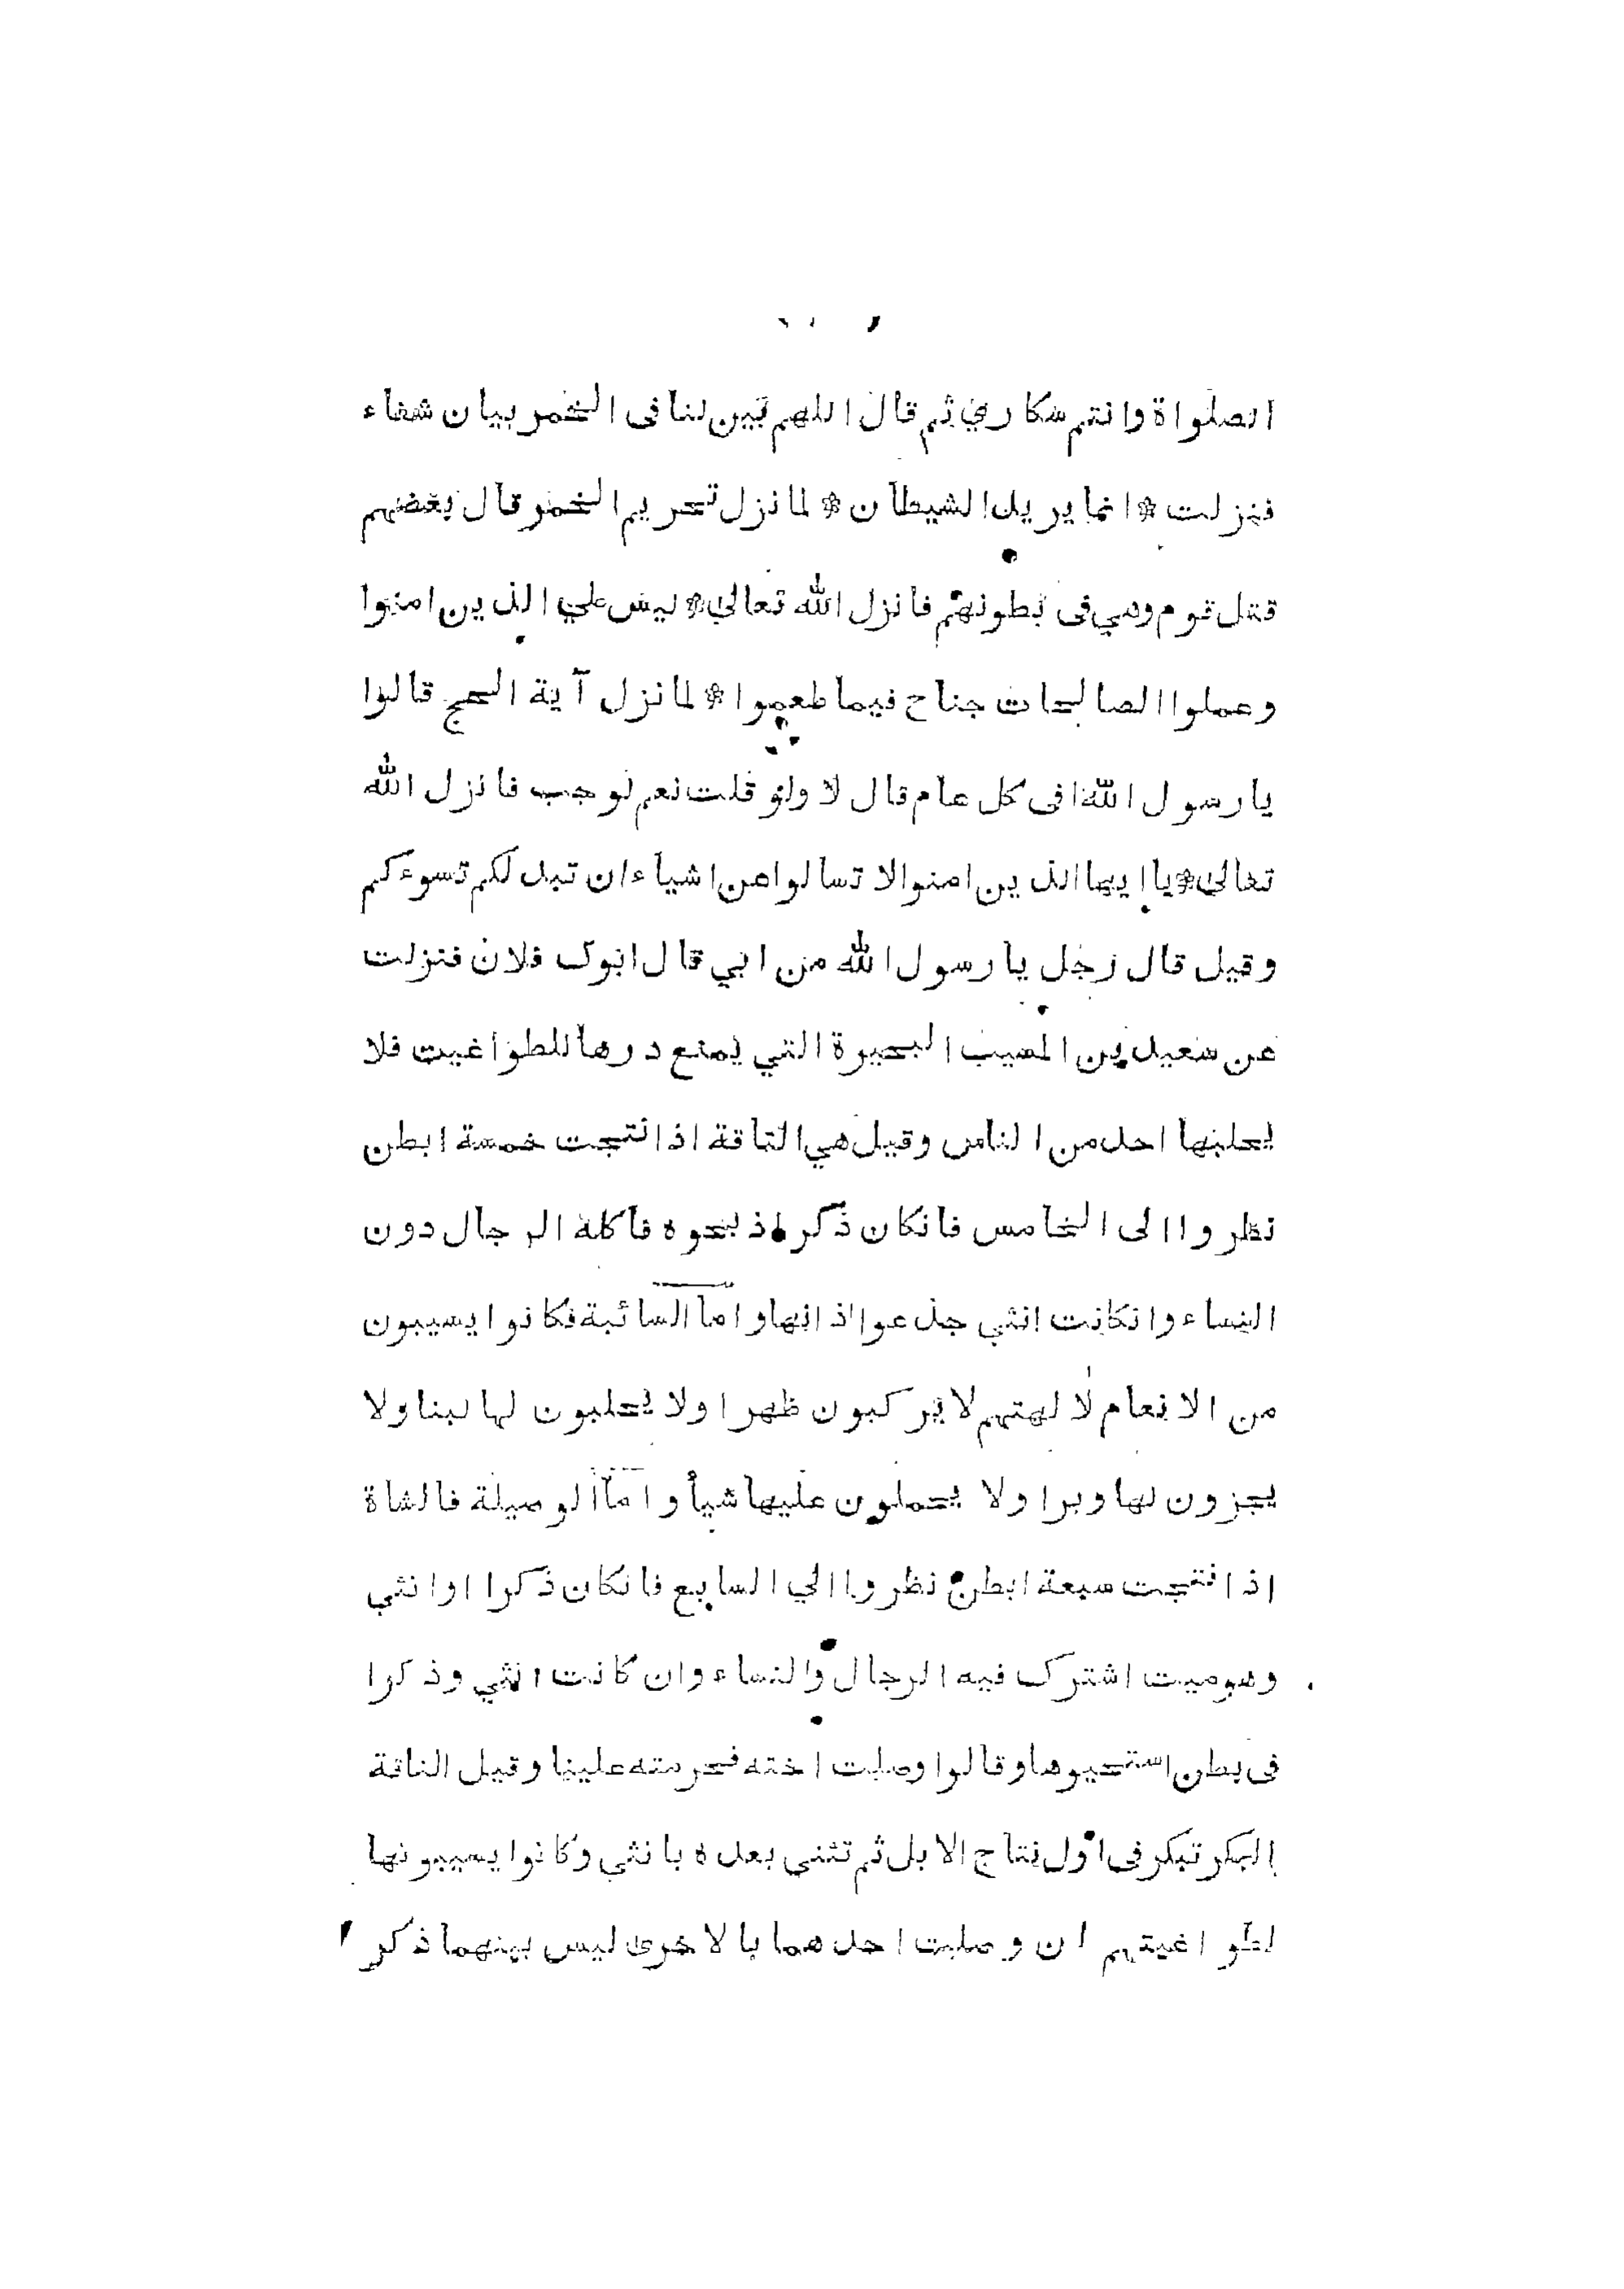 الصلواة وانتم سكاري ثم قال اللهم بين لنا فى الخمر بيان شفاء
فنزلت * انما يريد الشيطان * لما نزل تحريم الخمر قال بعضهم
قتل قوم وهي فى بطونهم فانزل الله تعالى * ليس علي الذين امنوا
وعملوا الصالحات جناح فيما طعموا * لما نزل آية الحج قالوا
يا رسول الله افى كل عام قال لا ولو قلت نعم لوجب فانزل الله
تعالى * يا ايها الذين امنوا لا تسالوا عن اشياء ان تبد لكم تسوءكم
وقيل قال رجل يا رسول الله من ابي قال ابوك فلان فنزلت
عن سعيد بن المسيب البحيرة التي يمنع درها للطواغيت فلا
يحلبها احد من الناس وقيل هي الناقة اذا نتجت خمسة ابطن
نظروا الى الخامس فانكان ذكرا ذبحوه فاكله الرجال دون
النساء وانكانت انثي جدعوا اذانها واما السائبة فكانوا يسيبون
من الانعام لالهتهم لا يركبون ظهرا ولا يحلبون لها لبنا ولا
يجزون لها وبرا ولا يحملون عليها شيأ واما الوصيلة فالشاة
اذا نتجت سبعة ابطن نظروا الي السابع فانكان ذكرا او انثي
وهو ميت اشترك فيه الرجال والنساء وان كانت انثي وذكرا
فى بطن استحيوها وقالوا وصلت اخته فحرمته علينا وقيل الناقة
البكر تبكر فى اول نتاج الابل ثم تثنى بعده بانثي وكانوا يسيبونها
لطواغيتهم ان وصلت احدهما بالاخرى ليس بينهما ذكر